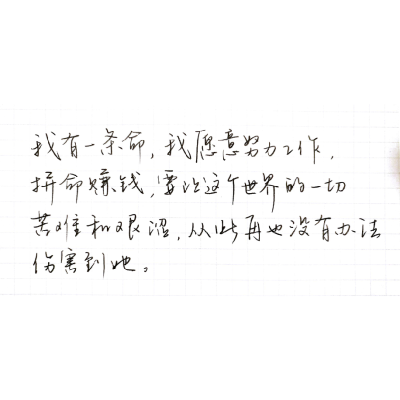 我有一条命，我愿意努力工作，
拼命赚钱，要让这个世界的一切
苦难和艰涩，从此再也没有办法
伤害到她。